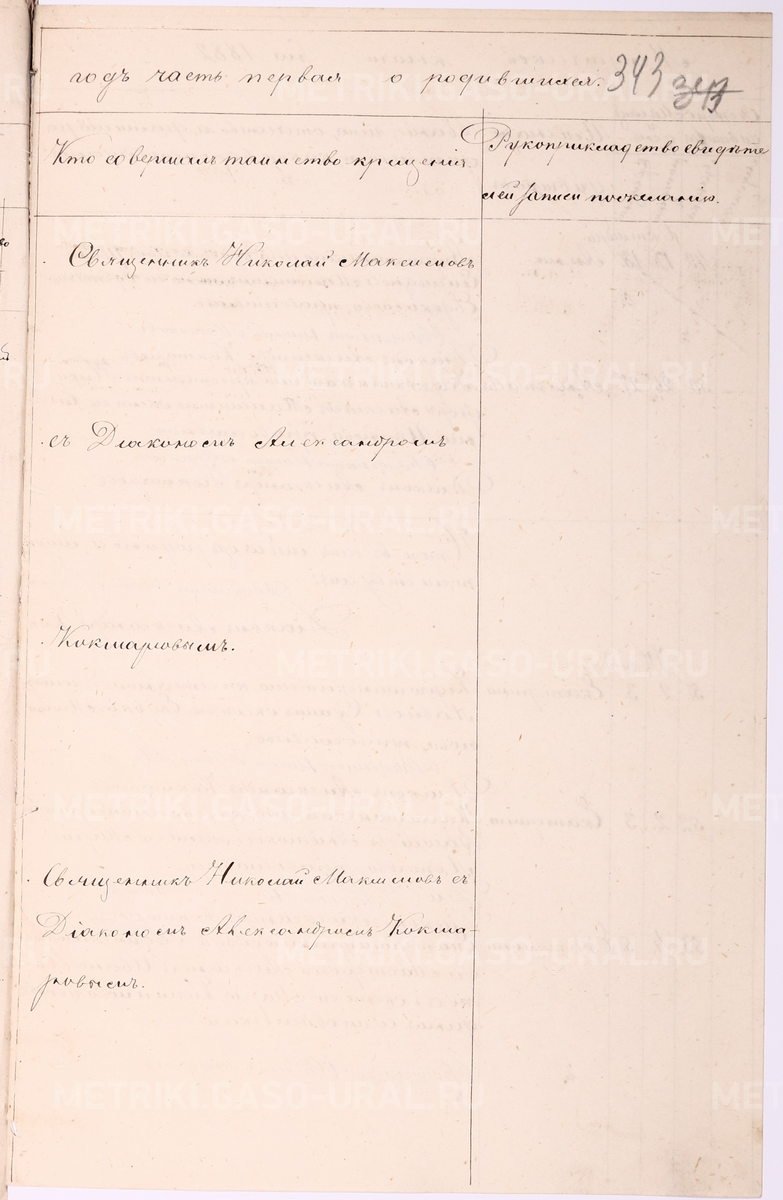 годъ часть первая о родившихся. 343 343
Кто совершалъ таинство крещенія
Рукоприкладство свидѣте
лей записи по желанію.
Священникъ Николай Максимовъ
съ Діакономъ Александромъ
Кокшаровымъ.
Священникъ Николай Максимовъ съ
Діакономъ Александромъ Кокша-
ровымъ.
METRIKI.GASO-URAL.RU